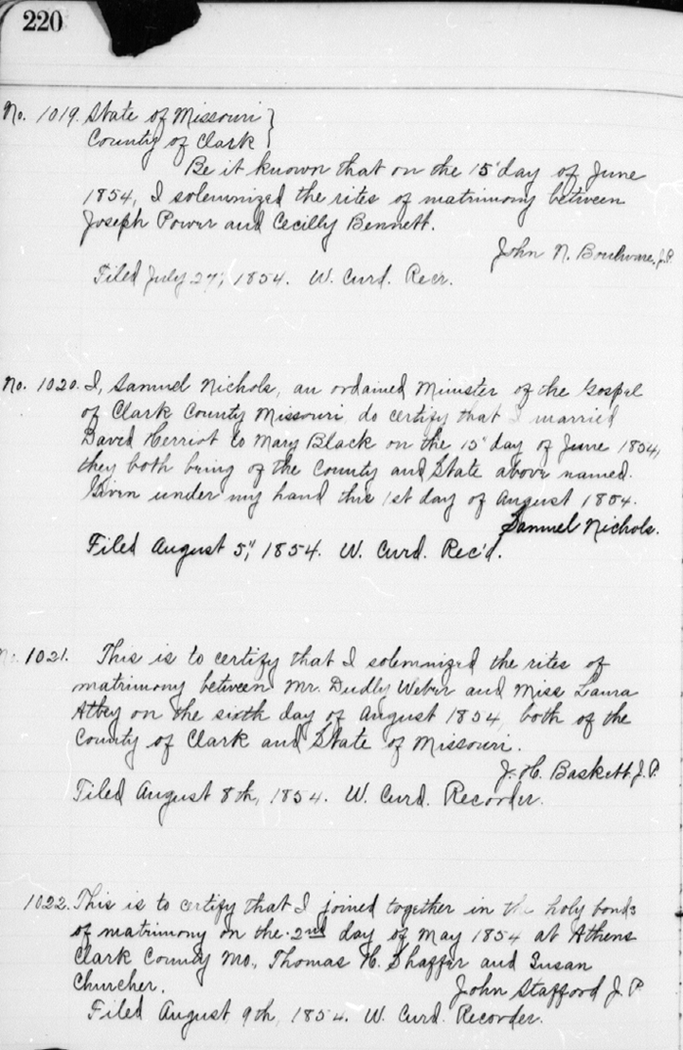 220
No. 1019. State of Missouri }
County of Clark }
Be it known that on the 15" day of June
1854, I solemnized the rites of matrimony between
Joseph Power and Cecilly Bennett.
John N. Boulware, J.P.
Filed July 27", 1854. W. Curd. Recr.
No. 1020. I, Samuel Nichols, an ordained Minister of the Gospel
of Clark County Missouri, do certify that I married
David Herriot to Mary Black on the 15" day of June 1854,
they both being of the County and State above named.
Given under my hand this 1st day of August 1854.
Samuel Nichols.
Filed August 5", 1854. W. Curd. Rec'd.
No. 1021. This is to certify that I solemnized the rites of
matrimony between Mr. Dudly Weber and Miss Laura
Atbey on the sixth day of August 1854, both of the
County of Clark and State of Missouri.
J. H. Baskett J.P.
Filed August 8th, 1854. W. Curd. Recorder.
1022. This is to certify that I joined together in the holy bonds
of matrimony on the 2nd day of May 1854 at Athens
Clark County Mo., Thomas H. Shaffer and Susan
Churcher.
John Stafford J.P.
Filed August 9th, 1854. W. Curd. Recorder.